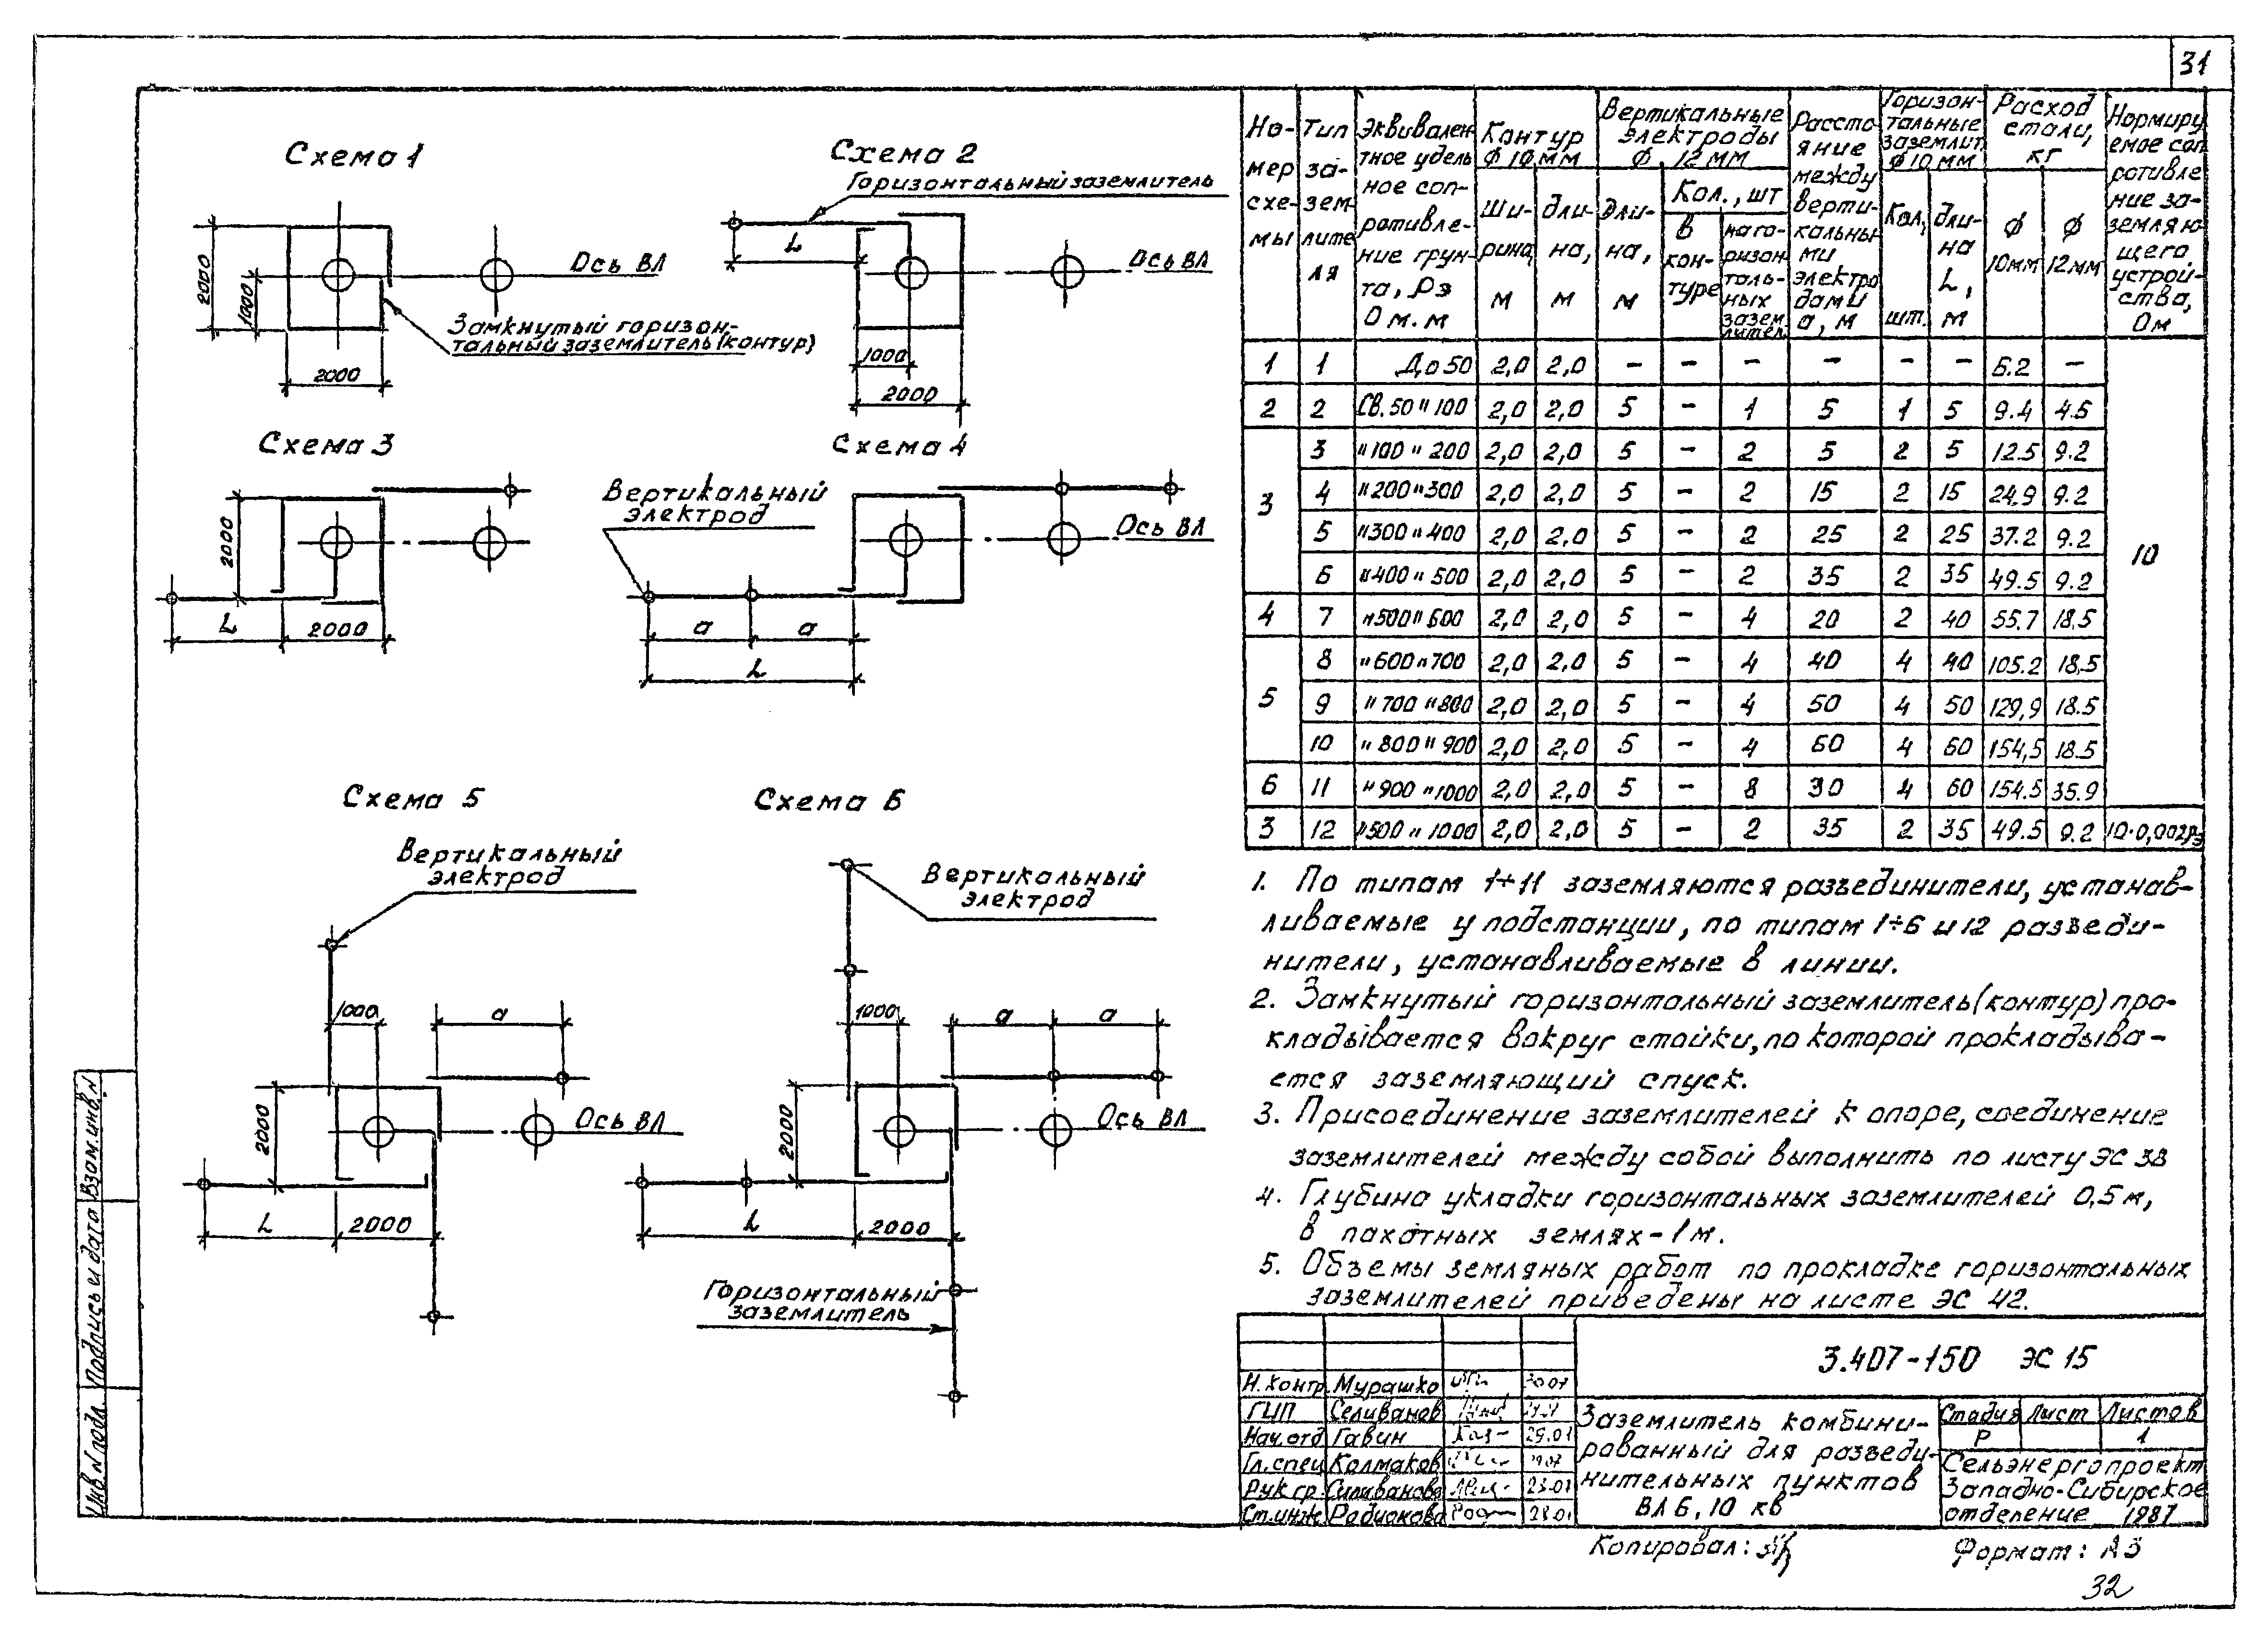 31
Схема 1
2000
1000
2000
Ось ВЛ
Замкнутый горизон-
тальный заземлитель (контур)
Схема 2
Горизонтальный заземлитель
L
Ось ВЛ
1000
2000
Схема 3
2000
L
2000
Схема 4
Вертикальный
электрод
Ось ВЛ
а
а
L
Схема 5
Вертикальный
электрод
1000
а
2000
Ось ВЛ
L
2000
Схема 6
Вертикальный
электрод
1000
а
а
2000
Ось ВЛ
L
2000
Горизонтальный
заземлитель
Но-
мер
схе-
мы
Тип
за-
зем-
лите
ля
Эквивален
тное удель
ное соп-
ротивле-
ние грун-
та, ρэ
Ом.м
Контур
ф 10 мм
Ши-
рина,
м
Дли-
на,
м
Вертикальные
электроды
ф 12 мм
Дли-
на,
м
Кол., шт
в
кон-
туре
на го-
ризон-
таль-
ных
зазем.
лител.
Рассто-
яние
между
верти-
кальны-
ми
электро
дами
а, м
Горизон-
тальные
заземлит.
ф 10 мм
Кол,
шт.
Дли-
на
L,
м
Расход
стали,
кг
ф
10мм
ф
12мм
Нормиру
емое соп
ротивле
ние за-
земляю-
щего
устрой-
ства,
Ом
1 1 До 50 2,0 2,0 – – – – – – 6.2 –
2 2 Св. 50 " 100 2,0 2,0 5 – 1 5 1 5 9.4 4.5
3 3 " 100 " 200 2,0 2,0 5 – 2 5 2 5 12.5 9.2
4 " 200 " 300 2,0 2,0 5 – 2 15 2 15 24,9 9.2
5 " 300 " 400 2,0 2,0 5 – 2 25 2 25 37.2 9.2
6 " 400 " 500 2,0 2,0 5 – 2 35 2 35 49.5 9.2
10
4 7 " 500 " 600 2,0 2,0 5 – 4 20 2 40 55.7 18.5
5 8 " 600 " 700 2,0 2,0 5 – 4 40 4 40 105.2 18.5
9 " 700 " 800 2,0 2,0 5 – 4 50 4 50 129,9 18.5
10 " 800 " 900 2,0 2,0 5 – 4 60 4 60 154,5 18.5
6 11 " 900 " 1000 2,0 2,0 5 – 8 30 4 60 154.5 35.9
3 12 " 500 " 1000 2,0 2,0 5 – 2 35 2 35 49.5 9.2 10·0,002ρэ
1. По типам 1÷11 заземляются разъединители, устанав-
ливаемые у подстанции, по типам 1÷6 и 12 разъеди-
нители, устанавливаемые в линии.
2. Замкнутый горизонтальный заземлитель (контур) про-
кладывается вокруг стойки, по которой прокладыва-
ется заземляющий спуск.
3. Присоединение заземлителей к опоре, соединение
заземлителей между собой выполнить по листу ЭС 38
4. Глубина укладки горизонтальных заземлителей 0,5 м,
в пахотных землях – 1 м.
5. Объемы земляных работ по прокладке горизонтальных
заземлителей приведены на листе ЭС 42.
3.407-150 ЭС 15
Н. контр. Мурашко
ГИП Селиванов
Нач. отд Гавин 29.01
Гл. спец Колмаков
Рук гр. Селиванова 23.01
Ст. инж. Радионова 28.01
Заземлитель комбини-
рованный для разъеди-
нительных пунктов
ВЛ 6, 10 кв
Стадия Лист Листов
Р 1
Сельэнергопроект
Западно-Сибирское
отделение 1987
Инв. N подл. Подпись и дата Взам. инв. N
Копировал:
Формат: А3
32